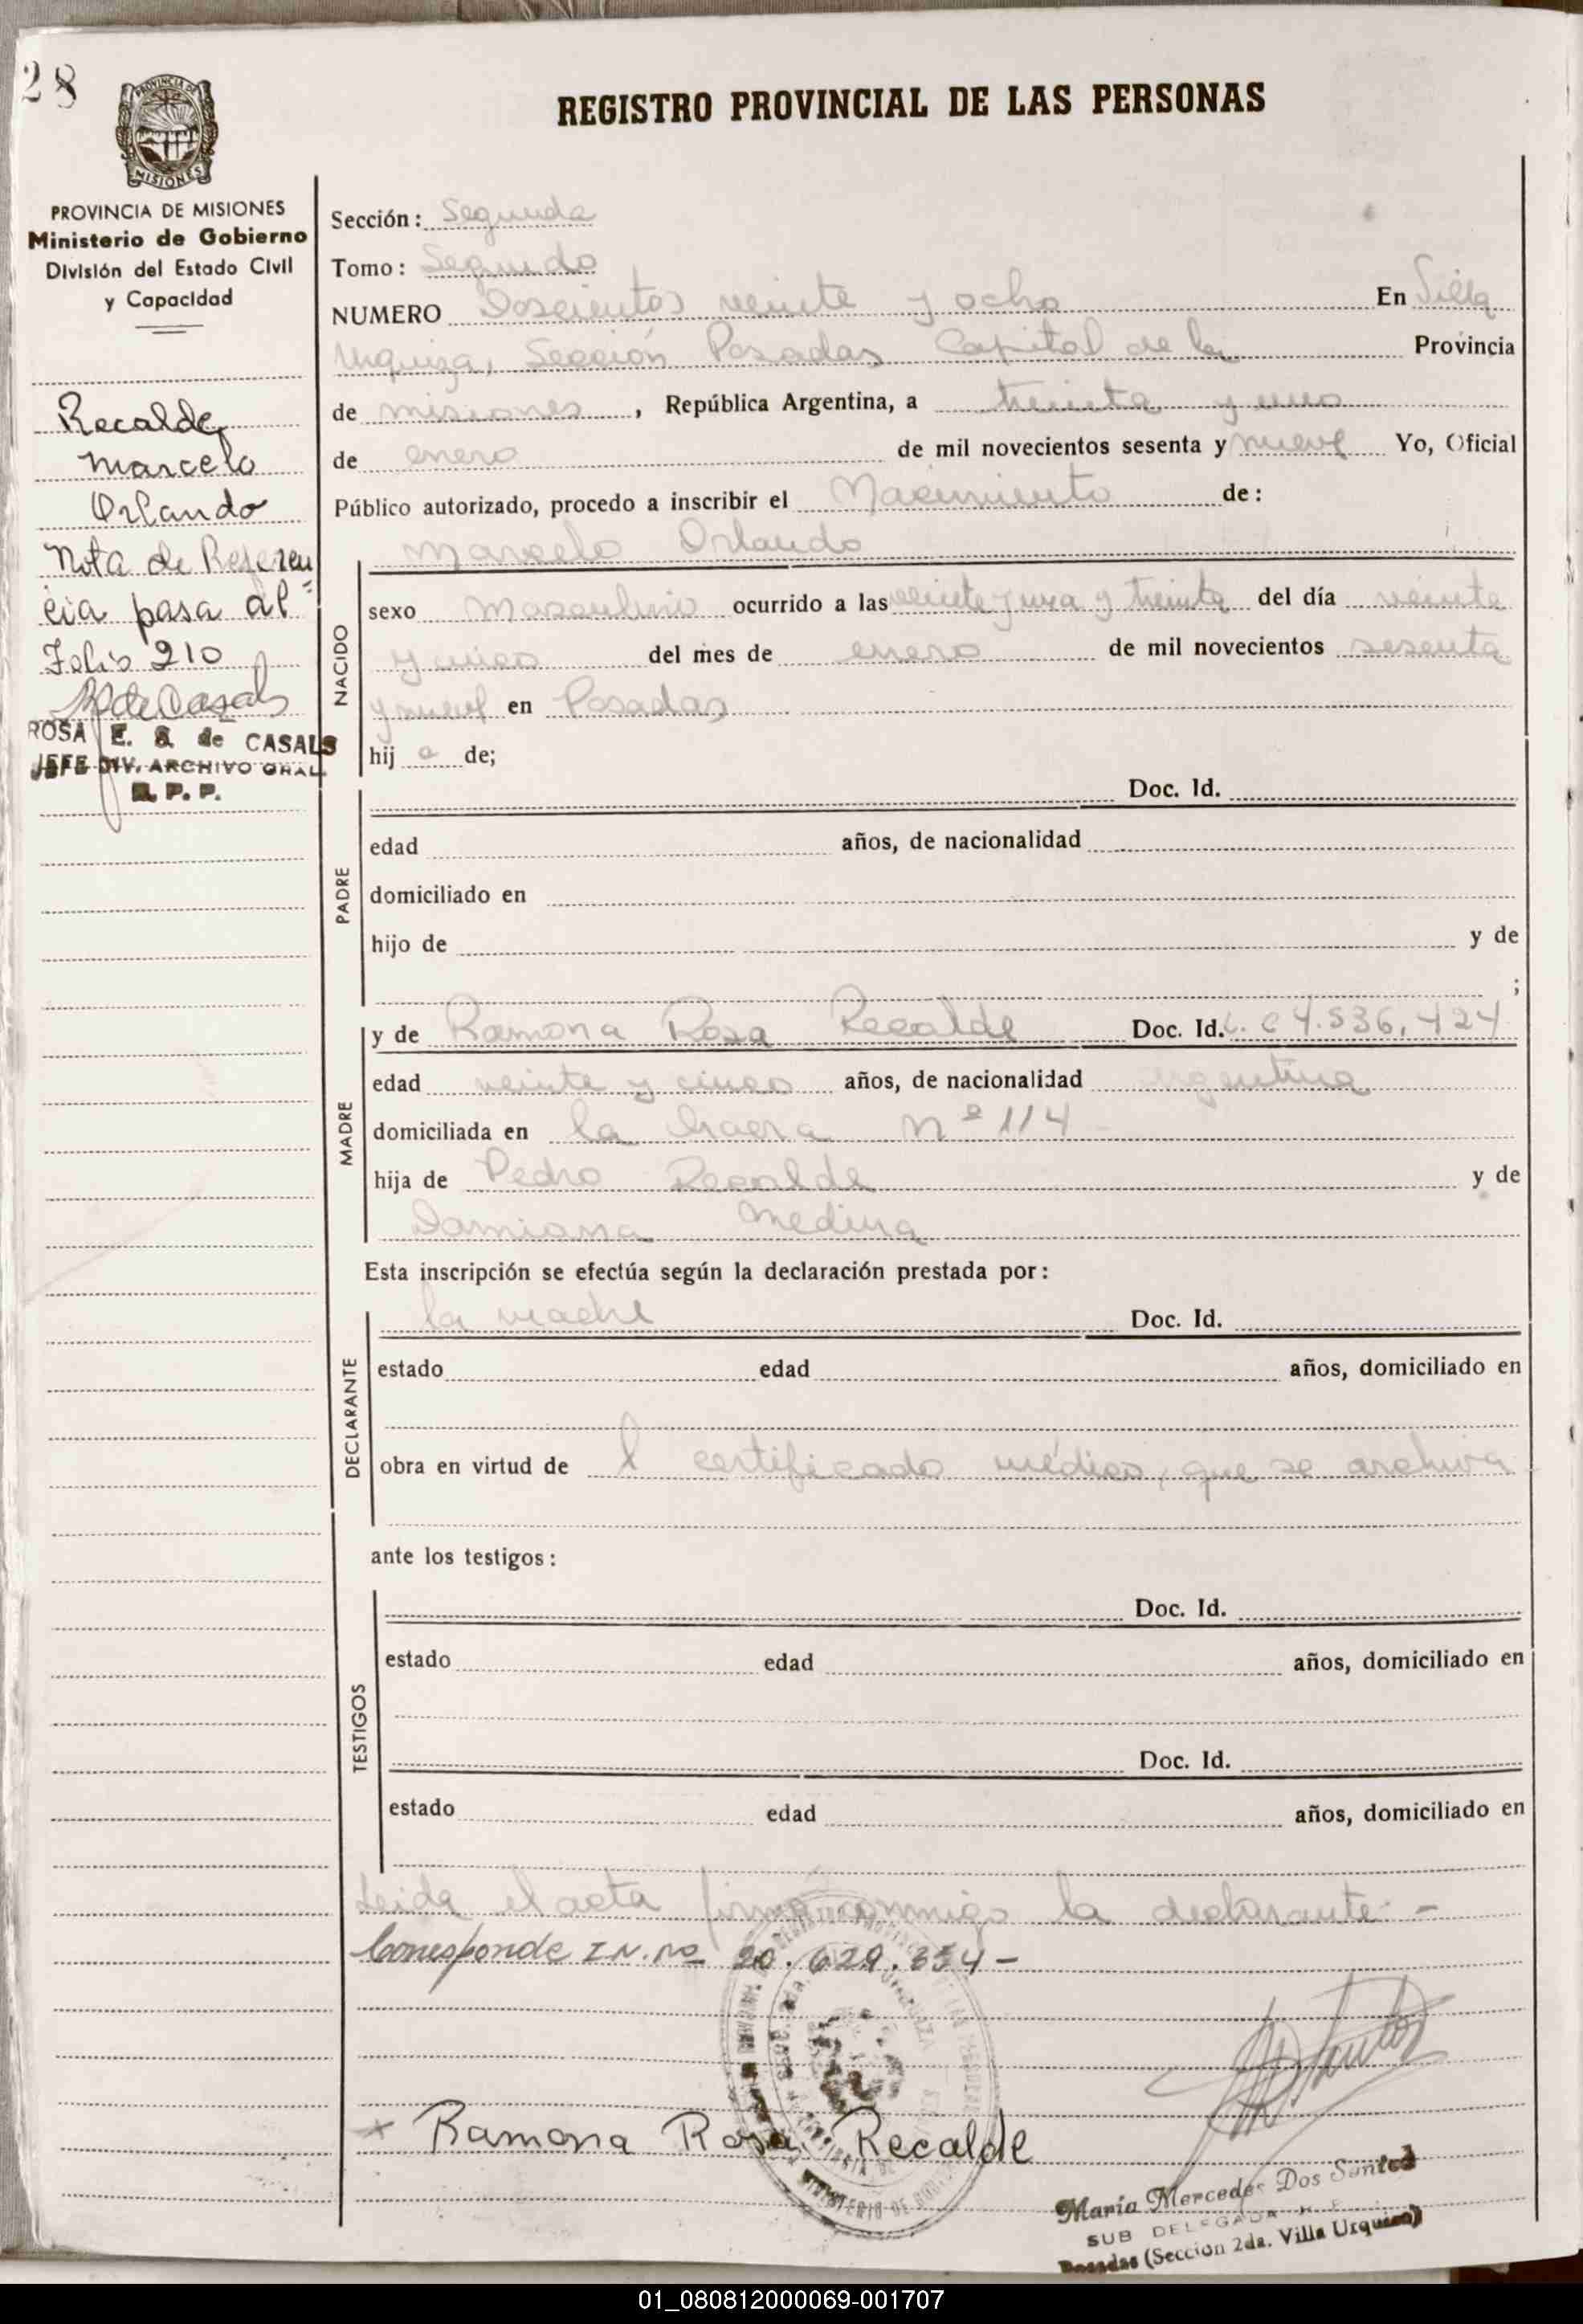 28
REGISTRO PROVINCIAL DE LAS PERSONAS
PROVINCIA DE
MISIONES
PROVINCIA DE MISIONES
Ministerio de Gobierno
División del Estado Civil
y Capacidad
Recalde
Marcelo
Orlando
Nota de Referen
cia pasa al
Folio 210
R de Casals
ROSA E. S. de CASALS
JEFE DIV. ARCHIVO GRAL.
R. P. P.
Sección: Segunda
Tomo: Segundo
NUMERO Doscientos veinte y ocho En Villa
Urquiza, Sección Posadas Capital de la Provincia
de misiones, República Argentina, a treinta y uno
de enero de mil novecientos sesenta y nueve Yo, Oficial
Público autorizado, procedo a inscribir el Nacimiento de:
Marcelo Orlando
NACIDO
sexo Masculino ocurrido a las veinte y una y treinta del día veinte
y cinco del mes de enero de mil novecientos sesenta
y nueve en Posadas
hij o de;
PADRE
Doc. Id.
edad años, de nacionalidad
domiciliado en
hijo de y de
;
MADRE
y de Ramona Rosa Recalde Doc. Id. L. C 4.536.424
edad veinte y cinco años, de nacionalidad argentina
domiciliada en la chacra Nº 114
hija de Pedro Recalde y de
Damiana Medina
Esta inscripción se efectúa según la declaración prestada por:
DECLARANTE
la madre Doc. Id.
estado edad años, domiciliado en
obra en virtud de l certificado médico, que se archiva
ante los testigos:
TESTIGOS
Doc. Id.
estado edad años, domiciliado en
Doc. Id.
estado edad años, domiciliado en
Leida el acta firmó conmigo la declarante. -
Corresponde I.N. No 20.629.354 -
x Ramona Rosa Recalde
María Mercedes Dos Santos
SUB DELEGADA
Posadas (Seccion 2da. Villa Urquiza)
01_080812000069-001707